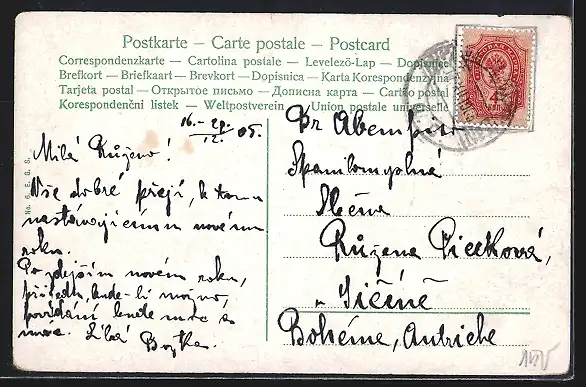 Postkarte – Carte postale – Postcard
Correspondenzkarte – Cartolina postale – Levelező-Lap – Dopisnice
Brefkort – Briefkaart – Brevkort – Dopisnica – Karta Korespondenzyjna
Tarjeta postal – Открытое письмо – Дописна карта – Cartao postal
Korespondenční listek – Weltpostverein – Union postale universelle
16.–29./12. 05.
Milá Růženo!
Vše dobré přeji, k tomu
nastávajícímu novému
roku.
Po zdejším novém roku,
přijedu, bude-li možno,
povídání bude moc a
moc. Líbá
Slečna
Růžena
Jičíně
Bohéme, Autriche